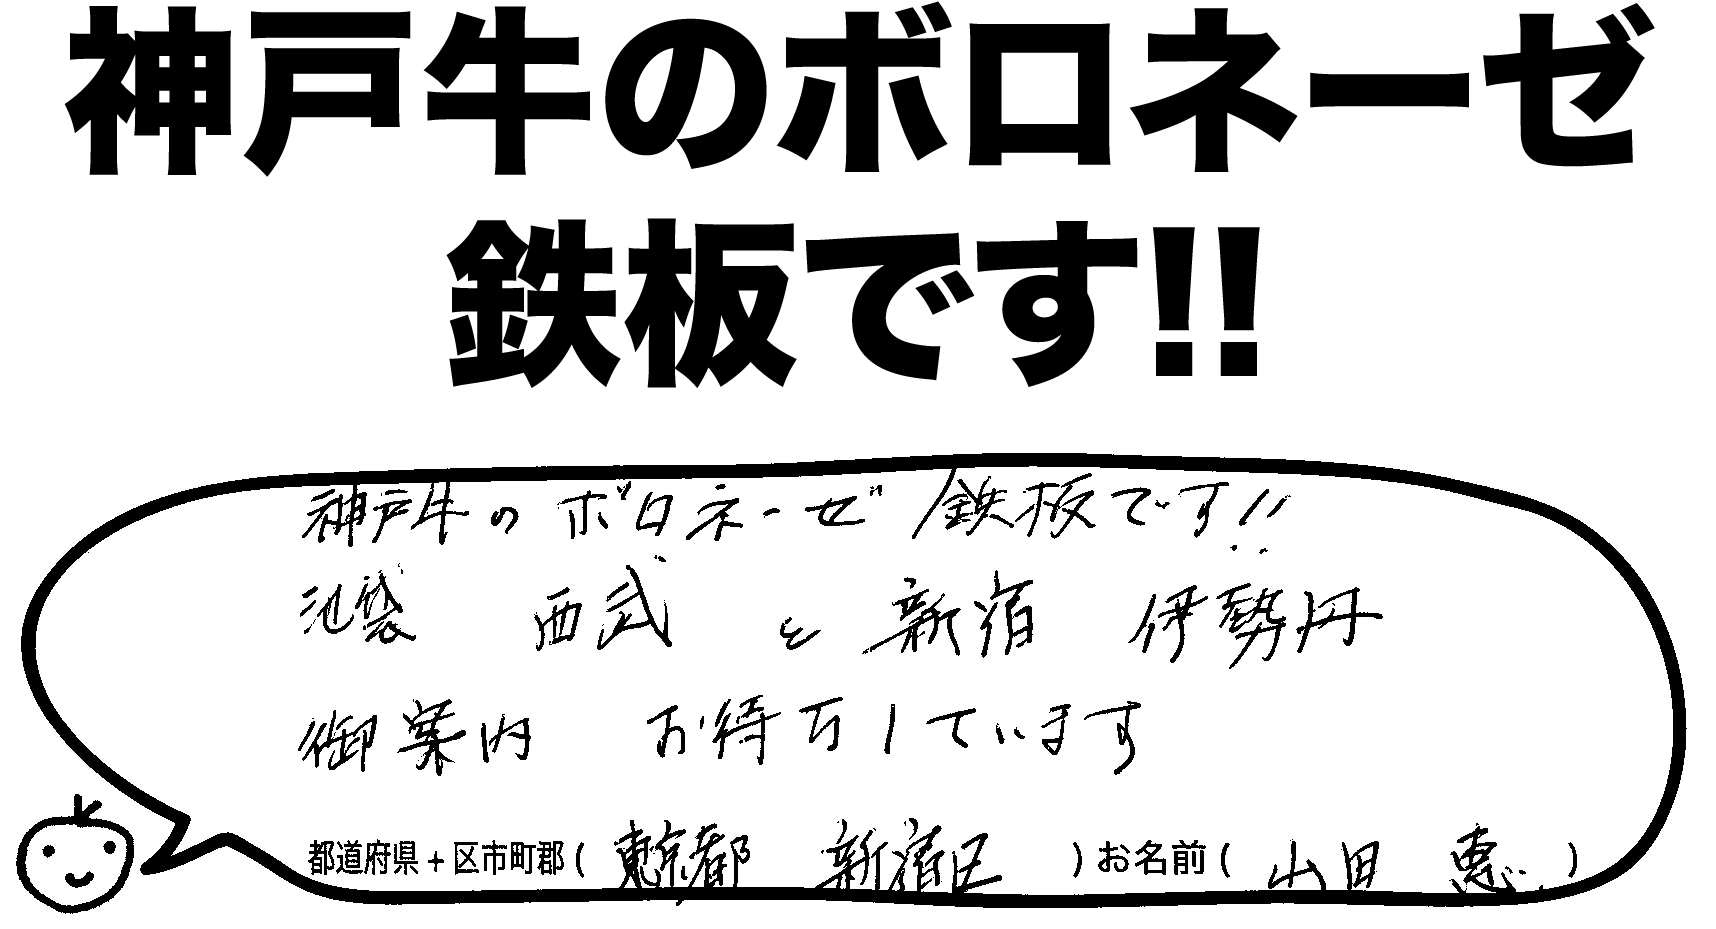 神戸牛のボロネーゼ
鉄板です!!
神戸牛のボロネーゼ 鉄板です!!
池袋 西武 と 新宿 伊勢丹
御案内 お待ちしています
都道府県+区市町郡( 東京都 新宿区 )お名前( 山田 恵 )